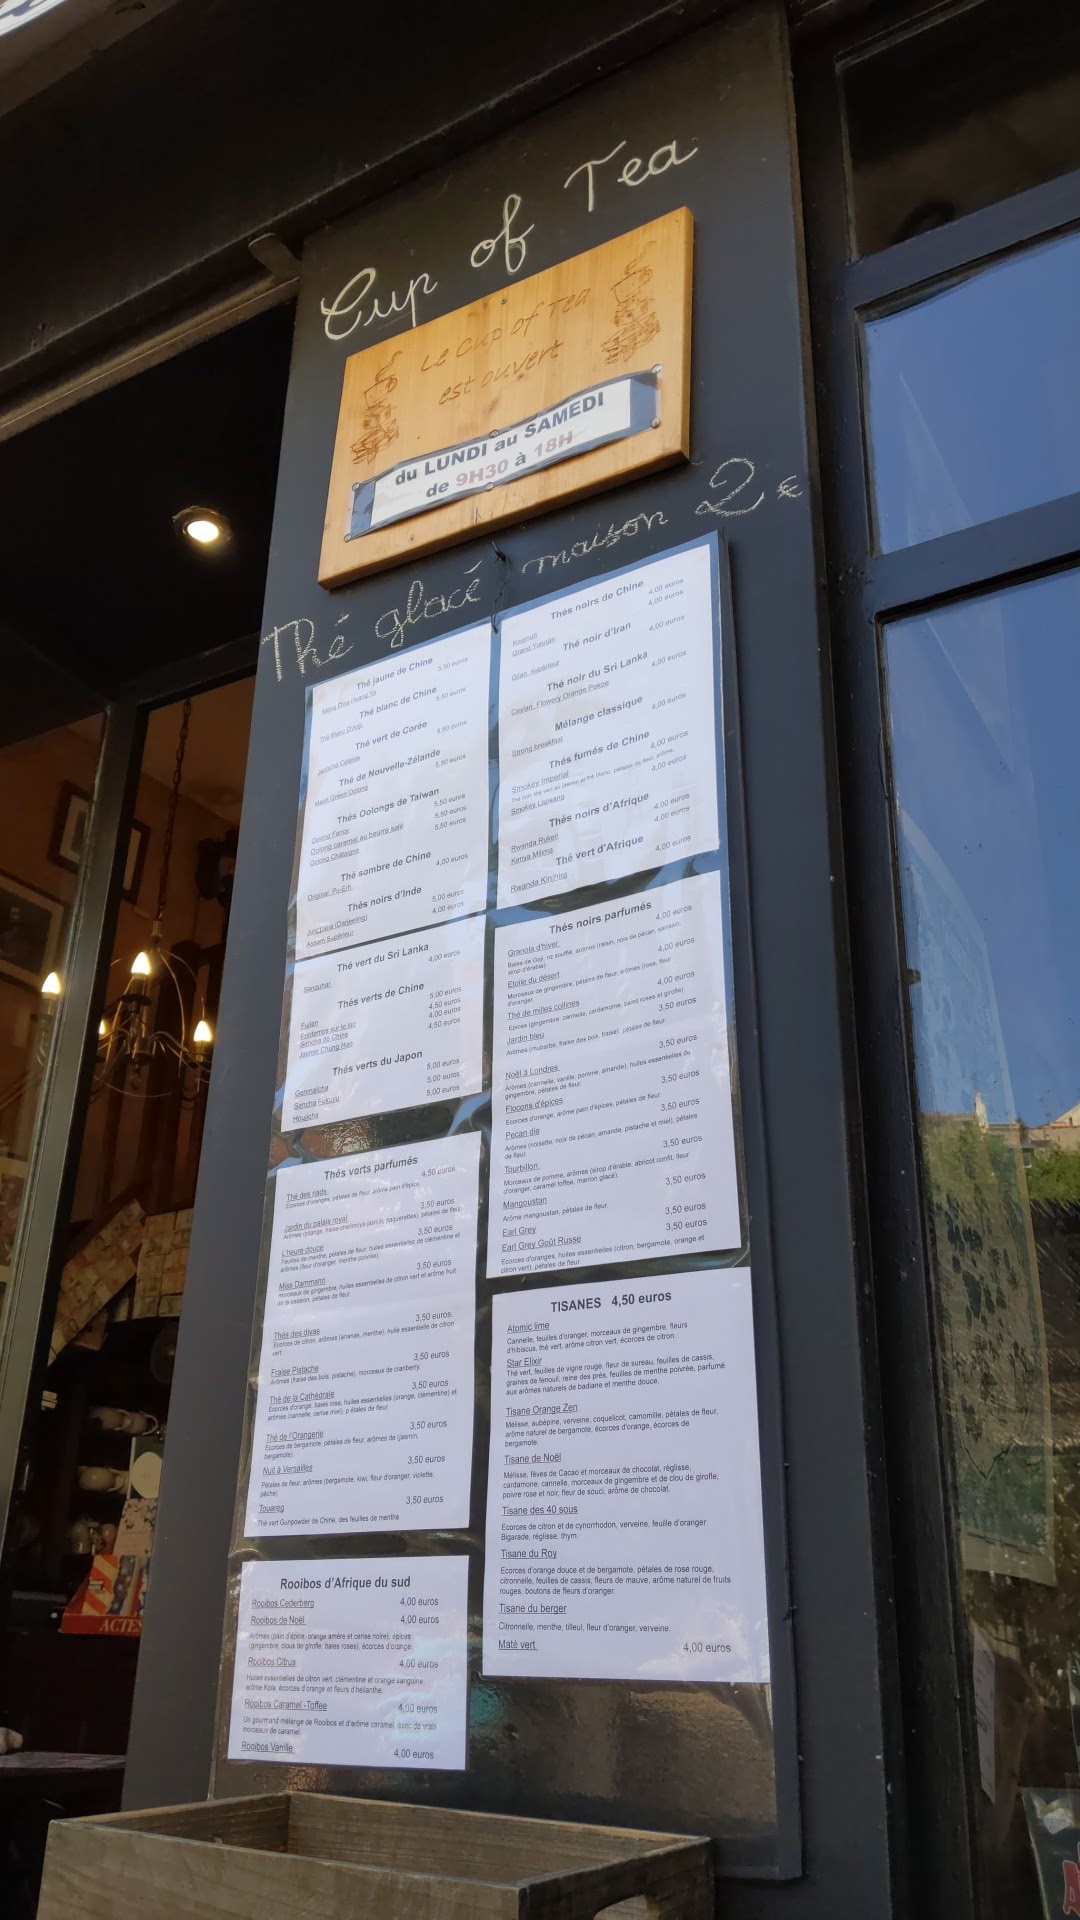 Cup of Tea
Le Cup of Tea
est ouvert
du LUNDI au SAMEDI
de 9H30 à 18H
Thé glacé maison 2€
Thé jaune de Chine
5,50 euros
Thé blanc de Chine
5,50 euros
Thé vert de Corée
5,50 euros
Thé de Nouvelle-Zélande
5,50 euros
Thés Oolongs de Taïwan
Oolong Fancy 5,50 euros
Oolong caramel au beurre salé 5,50 euros
Oolong Châtaigne 5,50 euros
Thé sombre de Chine
Original Pu-Erh 4,00 euros
Thés noirs d'Inde
Jungpana (Darjeeling) 5,00 euros
Assam Supérieur 4,00 euros
Thé vert du Sri Lanka
4,00 euros
Thés verts de Chine
Fujian 5,00 euros
Printemps sur le lac 4,50 euros
Sencha de Chine 4,00 euros
Jasmin Chung Hao 4,50 euros
Thés verts du Japon
Genmaïcha 5,00 euros
Sencha Fukuyu 5,00 euros
Houjicha 5,00 euros
Thés verts parfumés
Thé des riads 4,50 euros
Ecorces d'oranges, pétales de fleur, arôme pain d'épice.
Jardin du palais royal 3,50 euros
L'heure douce 3,50 euros
Feuilles de menthe, pétales de fleur, huiles essentielles de clémentine et
arômes (fleur d'oranger, menthe poivrée).
Miss Dammann 3,50 euros
morceaux de gingembre, huiles essentielles de citron vert et arôme fruit
de la passion, pétales de fleur
Thés des divas 3,50 euros.
Ecorces de citron, arômes (ananas, menthe), huile essentielle de citron
vert.
Fraise Pistache 3,50 euros
Arômes (fraise des bois, pistache), morceaux de cranberry.
Thé de la Cathédrale 3,50 euros
Ecorces d'orange, baies rose, huiles essentielles (orange, clémentine) et
arômes (cannelle, cerise miel), p étales de fleur.
Thé de l'Orangerie 3,50 euros
Ecorces de bergamote, pétales de fleur, arômes de (jasmin,
bergamote).
Nuit à Versailles 3,50 euros
Pétales de fleur, arômes (bergamote, kiwi, fleur d'oranger, violette,
pêche)
Touareg 3,50 euros
Thé vert Gunpowder de Chine, des feuilles de menthe
Rooibos d'Afrique du sud
Rooibos Cederberg 4,00 euros
Rooibos de Noël 4,00 euros
Arômes (pain d'épice, orange amère et cerise noire), épices
(gingembre, clous de girofle, baies roses), écorces d'orange.
Rooibos Citrus 4,00 euros
Huiles essentielles de citron vert, clémentine et orange sanguine,
arôme Kola, écorces d'orange et fleurs d'hélianthe.
Rooibos Caramel -Toffee 4,00 euros
Un gourmand mélange de Rooibos et d'arôme caramel avec de vrais
morceaux de caramel.
Rooibos Vanille 4,00 euros
Thés noirs de Chine
Keemun 4,00 euros
Grand Yunnan 4,00 euros
Thé noir d'Iran
4,00 euros
Thé noir du Sri Lanka
Ceylan, Flowery Orange Pekoe 4,00 euros
Mélange classique
Strong breakfast 4,00 euros
Thés fumés de Chine
Smokey Imperial 4,00 euros
Smokey Lapsang 4,00 euros
Thés noirs d'Afrique
Rwanda Rukeri 4,00 euros
Kenya Milima 4,00 euros
Thé vert d'Afrique
Rwanda Kinihira 4,00 euros
Thés noirs parfumés
Granola d'hiver 4,00 euros
Baies de Goji, riz soufflé, arômes (raisin, noix de pécan, sarrasin,
sirop d'érable)
Etoile du désert 4,00 euros
Morceaux de gingembre, pétales de fleur, arômes (rose, fleur
d'oranger.
Thé de milles collines 4,00 euros
Epices (gingembre, cannelle, cardamome, baies roses et girofle).
Jardin bleu 3,50 euros
Arômes (rhubarbe, fraise des bois, fraise), pétales de fleur.
Noël à Londres 3,50 euros
Arômes (cannelle, vanille, pomme, amande), huiles essentielles du
gingembre, pétales de fleur.
Flocons d'épices 3,50 euros
Ecorces d'orange, arôme pain d'épices, pétales de fleur.
Pecan die 3,50 euros
Arômes (noisette, noix de pécan, amande, pistache et miel), pétales
de fleur.
Tourbillon 3,50 euros
Morceaux de pomme, arômes (sirop d'érable, abricot confit, fleur
d'oranger, caramel toffee, marron glacé).
Mangoustan 3,50 euros
Arôme mangoustan, pétales de fleur.
Earl Grey 3,50 euros
Earl Grey Goût Russe 3,50 euros
Ecorces d'oranges, huiles essentielles (citron, bergamote, orange et
citron vert), pétales de fleur.
TISANES 4,50 euros
Atomic lime
Cannelle, feuilles d'oranger, morceaux de gingembre, fleurs
d'hibiscus, thé vert, arôme citron vert, écorces de citron.
Star Elixir
Thé vert, feuilles de vigne rouge, fleur de sureau, feuilles de cassis,
graines de fenouil, reine des prés, feuilles de menthe poivrée, parfumé
aux arômes naturels de badiane et menthe douce.
Tisane Orange Zen
Mélisse, aubépine, verveine, coquelicot, camomille, pétales de fleur,
arôme naturel de bergamote, écorces d'orange, écorces de
bergamote.
Tisane de Noël
Mélisse, fèves de Cacao et morceaux de chocolat, réglisse,
cardamone, cannelle, morceaux de gingembre et de clou de girofle,
poivre rose et noir, fleur de souci, arôme de chocolat.
Tisane des 40 sous
Ecorces de citron et de cynorrhodon, verveine, feuille d'oranger
Bigarade, réglisse, thym.
Tisane du Roy
Ecorces d'orange douce et de bergamote, pétales de rose rouge,
citronnelle, feuilles de cassis, fleurs de mauve, arôme naturel de fruits
rouges, boutons de fleurs d'oranger.
Tisane du berger
Citronnelle, menthe, tilleul, fleur d'oranger, verveine.
Maté vert 4,00 euros